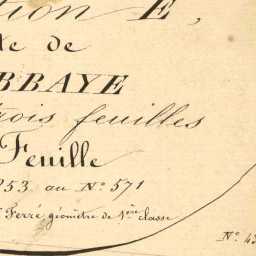 tion E,
de
BBAYE
trois feuilles
Feuille
253 au N° 571
Ferré, géomètre de 1ère classe
N° 43